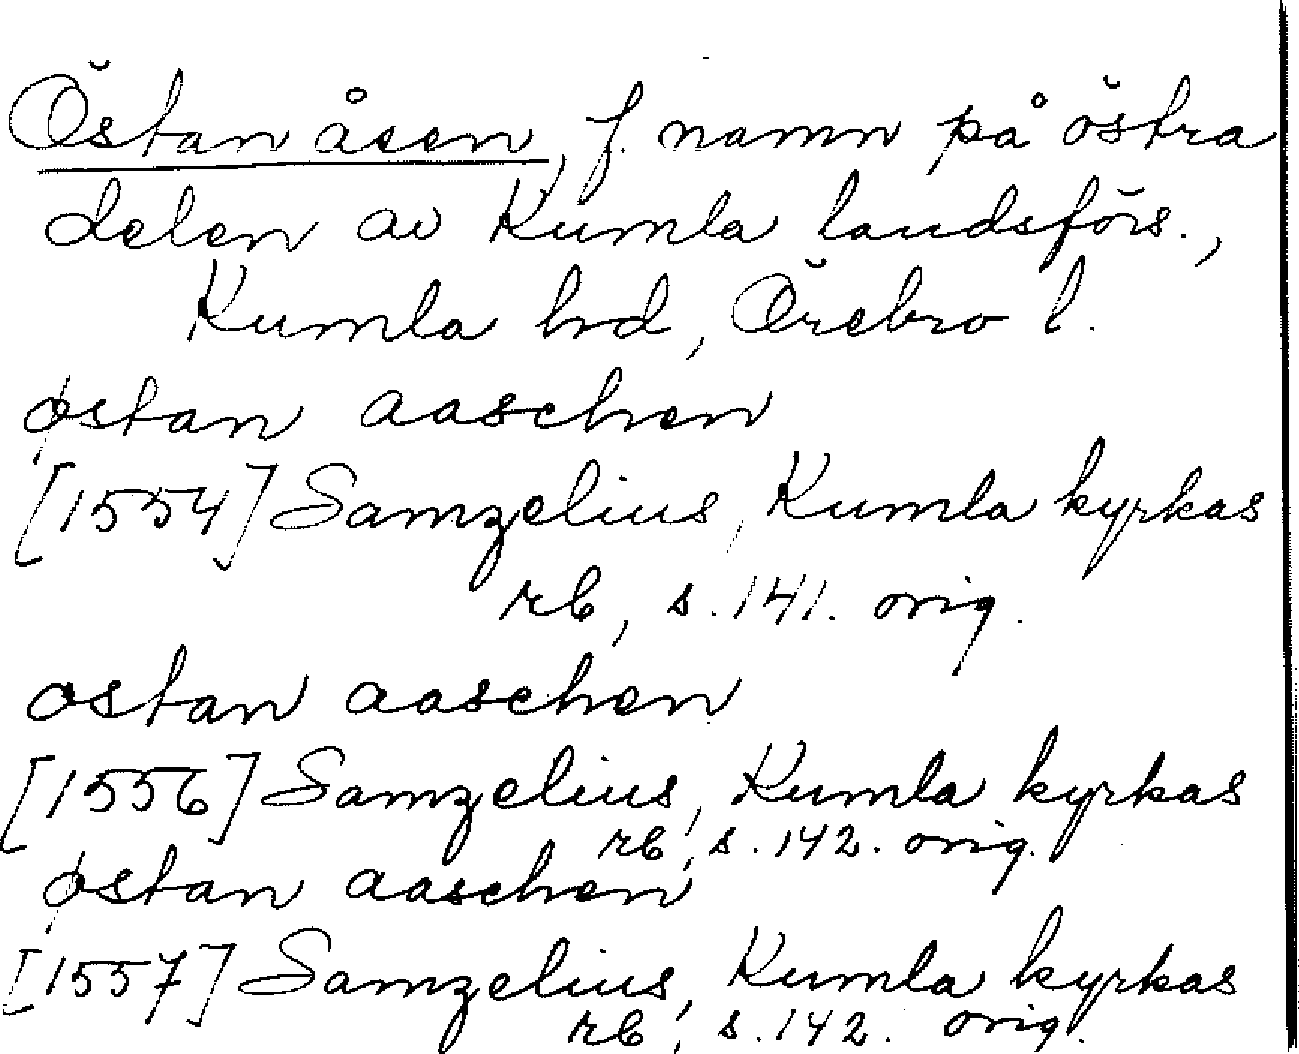 Östan åsen, f. namn på östra
delen av Kumla landsförs.,
Kumla hd, Örebro l.
østan aaschen
[1554] Samzelius, Kumla kyrkas
rb, s. 141. orig.
ostan aaschen
[1556] Samzelius, Kumla kyrkas
rb, s. 142. orig.
østan aaschen
[1557] Samzelius, Kumla kyrkas
rb, s. 142. orig.